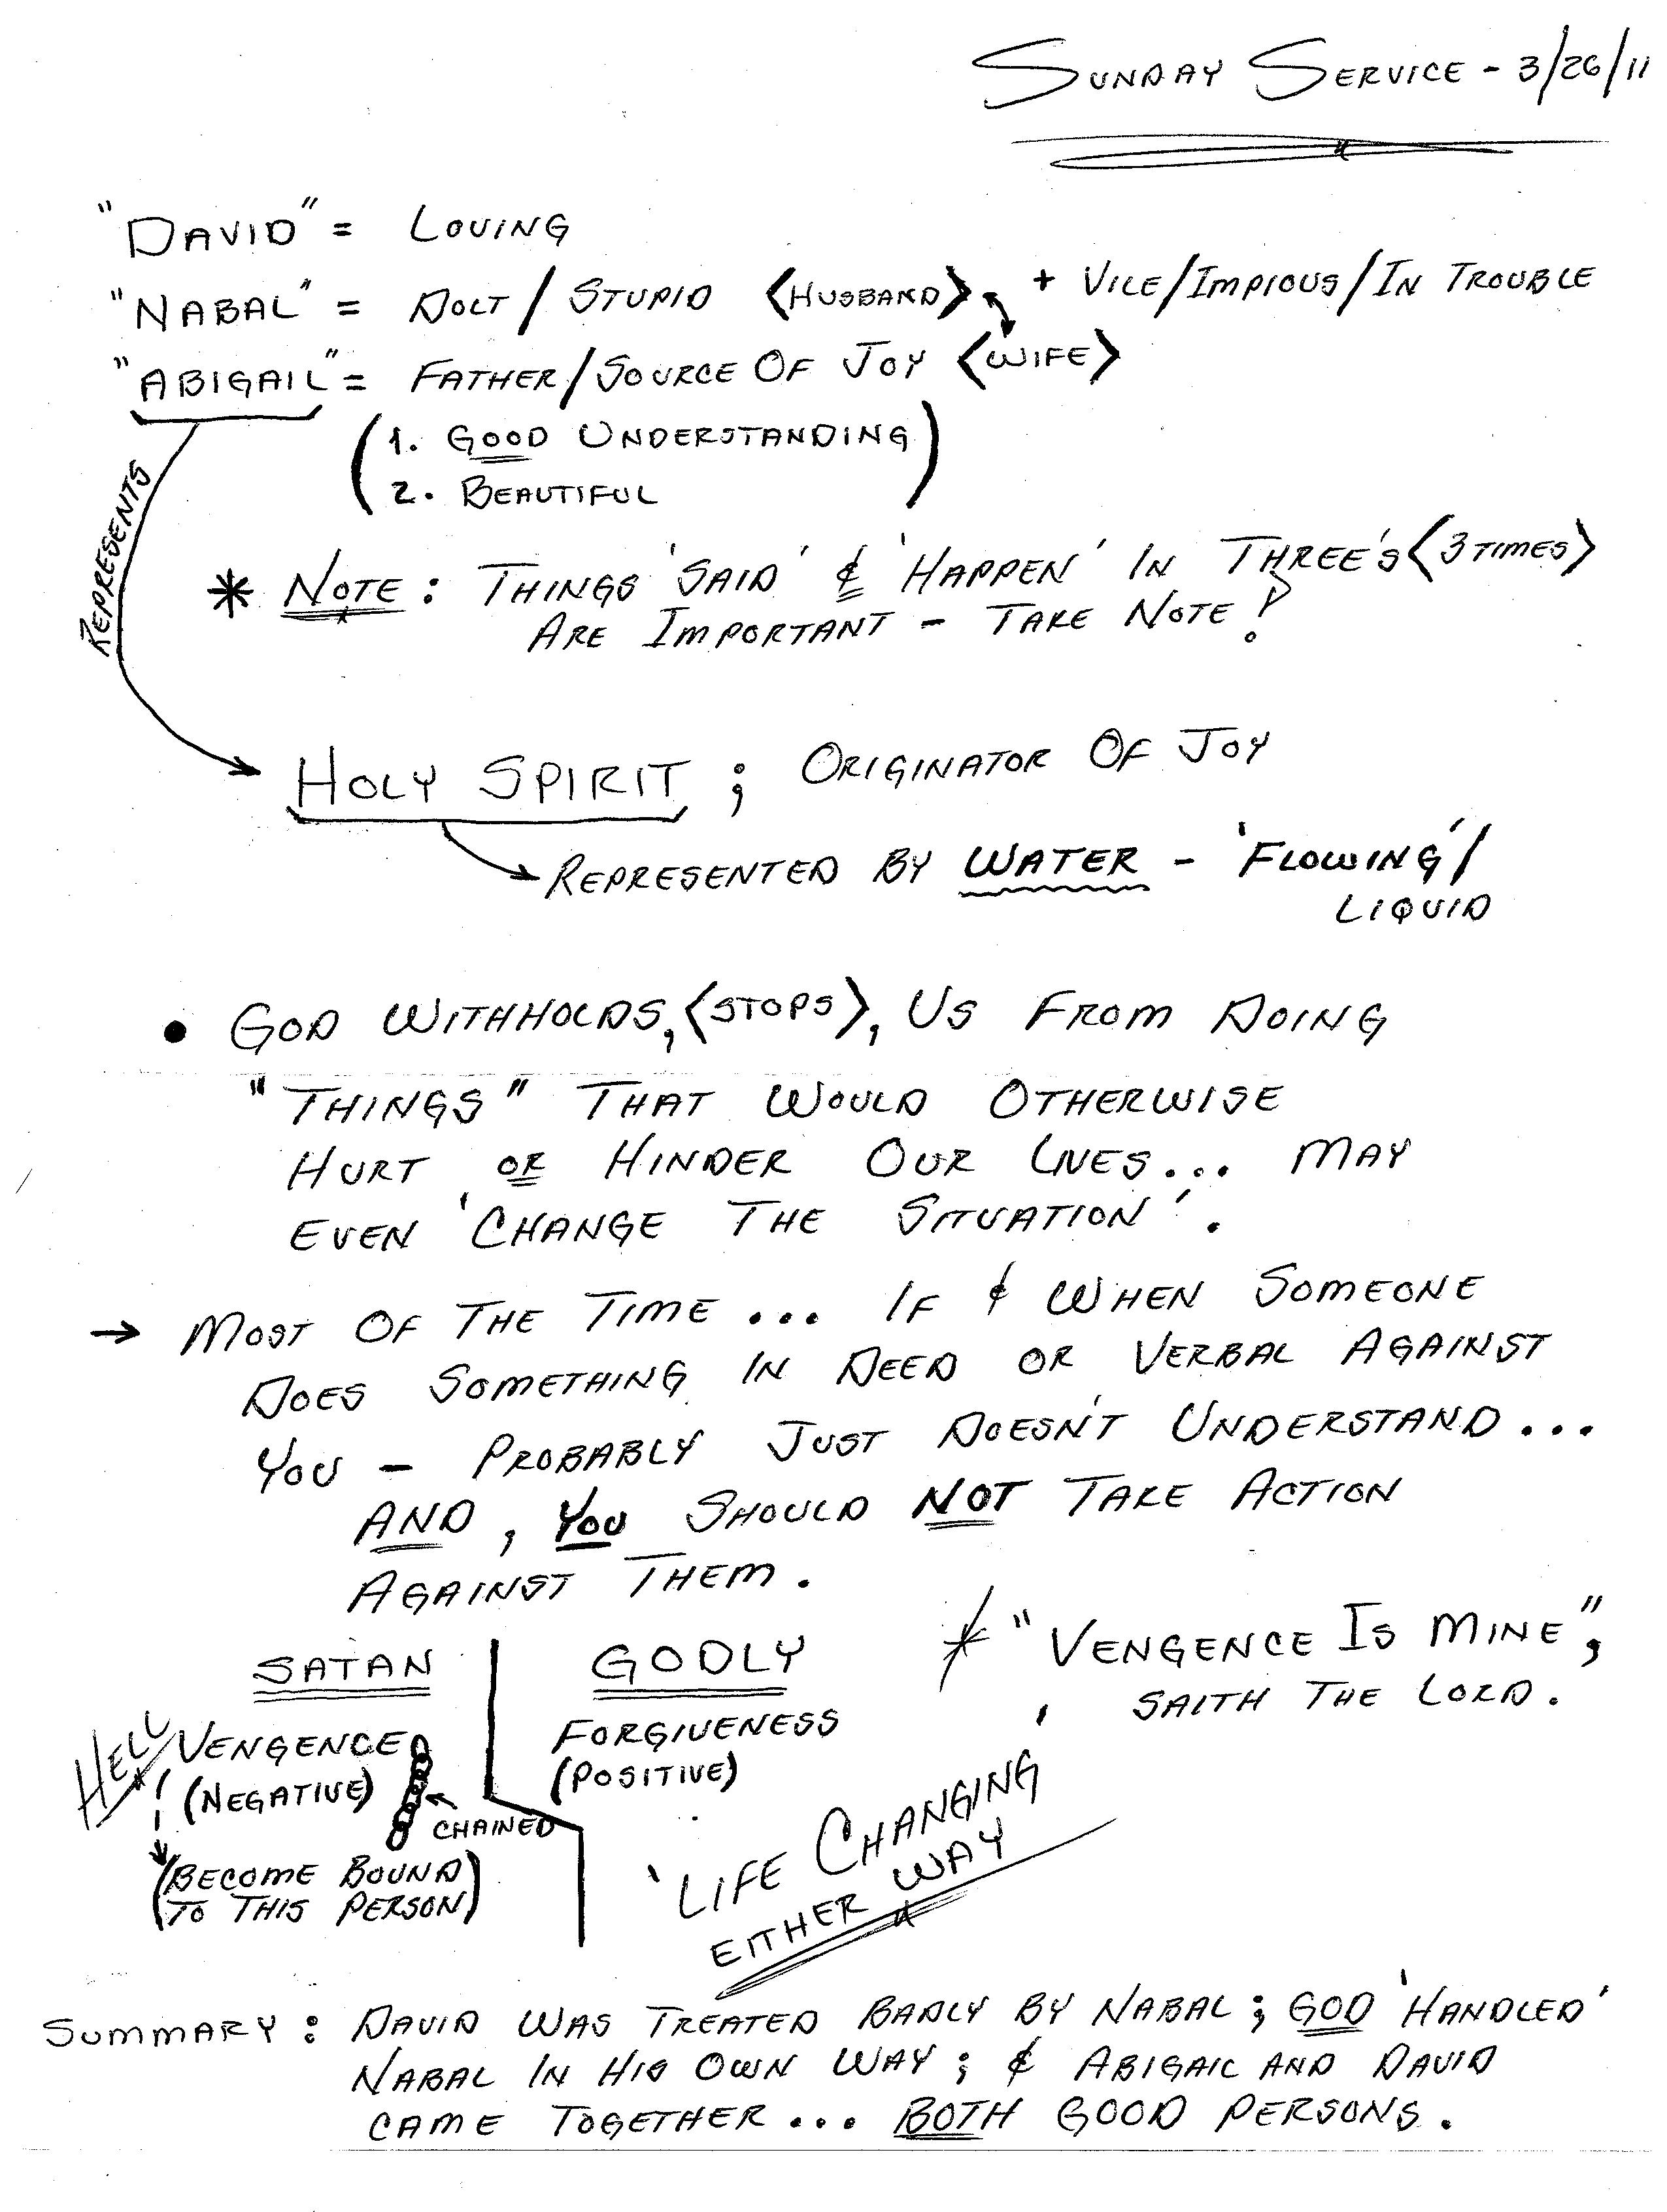 SUNDAY SERVICE - 3/26/11
"DAVID" = LOVING
"NABAL" = DOLT / STUPID <HUSBAND> + VILE/IMPIOUS/IN TROUBLE
"ABIGAIL" = FATHER/SOURCE OF JOY <WIFE>
(1. GOOD UNDERSTANDING
2. BEAUTIFUL)
REPRESENTS
* NOTE: THINGS 'SAID' & 'HAPPEN' IN THREE'S <3 TIMES>
ARE IMPORTANT - TAKE NOTE!
HOLY SPIRIT ; ORIGINATOR OF JOY
REPRESENTED BY WATER - 'FLOWING'/
LIQUID
• GOD WITHHOLDS, <STOPS>, US FROM DOING
"THINGS" THAT WOULD OTHERWISE
HURT OR HINDER OUR LIVES... MAY
EVEN 'CHANGE THE SITUATION'.
→ MOST OF THE TIME ... IF & WHEN SOMEONE
DOES SOMETHING IN DEED OR VERBAL AGAINST
YOU - PROBABLY JUST DOESN'T UNDERSTAND...
AND, YOU SHOULD NOT TAKE ACTION
AGAINST THEM.
* "VENGENCE IS MINE",
SAITH THE LORD.
SATAN
HELL
VENGENCE
(NEGATIVE)
CHAINED
(BECOME BOUND
TO THIS PERSON)
GODLY
FORGIVENESS
(POSITIVE)
'LIFE CHANGING'
EITHER WAY
SUMMARY: DAVID WAS TREATED BADLY BY NABAL; GOD 'HANDLED'
NABAL IN HIS OWN WAY; & ABIGAIL AND DAVID
CAME TOGETHER... BOTH GOOD PERSONS.